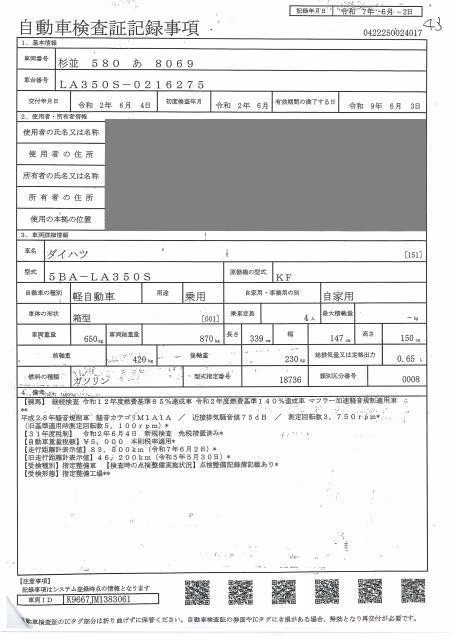 記録年月日 令和 7年 6月 2日
43
自動車検査証記録事項
0422250024017
1．基本情報
車両番号 杉並 580 あ 8069
車台番号 LA350S-0216275
交付年月日 令和 2年 6月 4日 初度検査年月 令和 2年 6月 有効期間の満了する日 令和 9年 6月 3日
2．使用者・所有者情報
使用者の氏名又は名称
使用者の住所
所有者の氏名又は名称
所有者の住所
使用の本拠の位置
3．車両詳細情報
車名 ダイハツ [151]
型式 5BA-LA350S 原動機の型式 KF
自動車の種別 軽自動車 用途 乗用 自家用・事業用の別 自家用
車体の形状 箱型 [001] 乗車定員 4人 最大積載量 －kg
車両重量 650kg 車両総重量 870kg 長さ 339cm 幅 147cm 高さ 150cm
前軸重 420kg 後軸重 230kg 総排気量又は定格出力 0.65L
燃料の種類 ガソリン 型式指定番号 18736 類別区分番号 0008
4．備考
【練馬】 継続検査 令和12年度燃費基準85％達成車 令和2年度燃費基準140％達成車 マフラー加速騒音規制適用車
**
平成28年騒音規制車 騒音カテゴリM1A1A ／ 近接排気騒音値75dB ／ 測定回転数3，750rpm*
（旧基準適用時測定回転数5，100rpm）*
【31年度税制】 令和2年6月4日 新規検査 免税措置済み*
【自動車重量税額】¥5，000 本則税率適用*
【走行距離計表示値】83，500km（令和7年6月2日）*
【旧走行距離計表示値】46，200km（令和5年5月30日）*
【受検種別】指定整備車 【検査時の点検整備実施状況】点検整備記録簿記載あり*
【受検形態】指定整備工場**
【注意事項】
記録事項はシステム登録時点の情報となります
車両ID K9667JM1383061
自動車検査証のICタグ部分は折り曲げずに保管ください。自動車検査証の券面やICタグにき損がある場合、無効となり再交付が必要です。